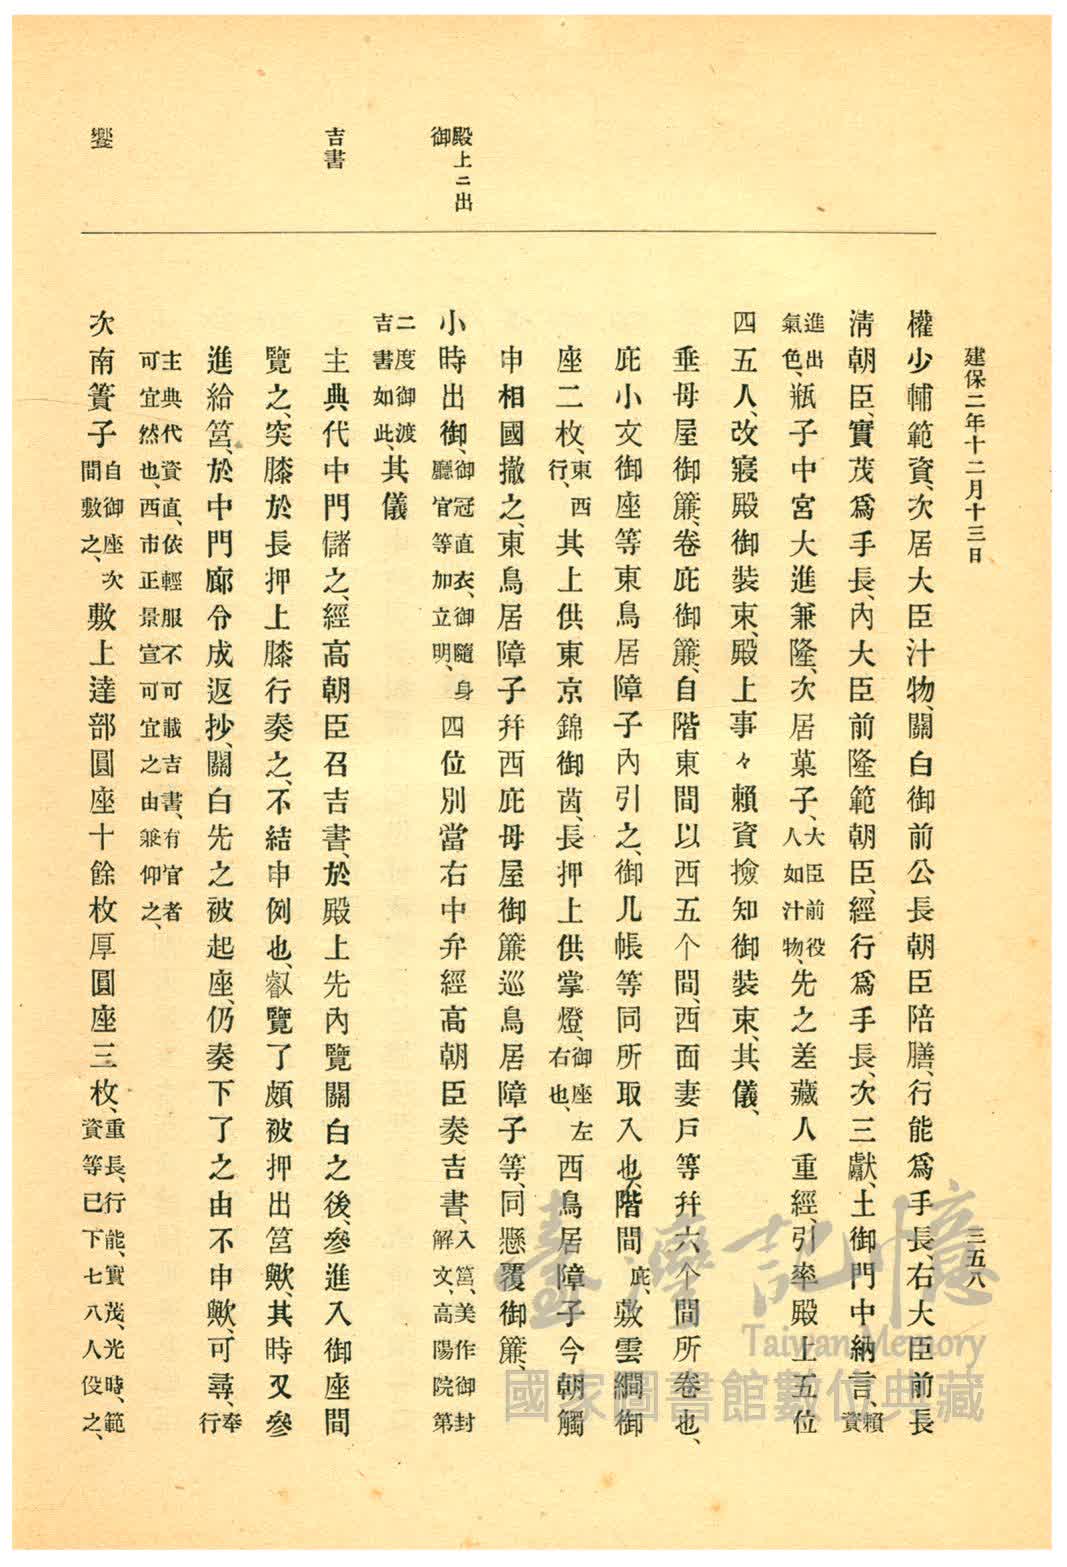 建保二年十二月十三日
三五八
權少輔範資、次居大臣汁物、關白御前公長朝臣陪膳、行能爲手長、右大臣前長
淸朝臣、實茂爲手長、內大臣前隆範朝臣、經行爲手長、次三獻、土御門中納言、賴資
進出氣色、瓶子中宮大進兼隆、次居菓子、大臣前役人如汁物、先之差藏人重經、引率殿上五位
四五人、改寢殿御裝束、殿上事々賴資撿知御裝束、其儀、
垂母屋御簾、卷庇御簾、自階東間以西五个間、西面妻戶等幷六个間所卷也、
庇小文御座等東鳥居障子內引之、御几帳等同所取入也、階間庇、敷雲繝御
座二枚、東西行、其上供東京錦御茵、長押上供掌燈、御座左右也、西鳥居障子今朝觸
申相國撤之、東鳥居障子幷西庇母屋御簾巡鳥居障子等、同懸覆御簾、
殿上ニ出御
小時出御、御冠直衣、御隨身廳官等加立明、四位別當右中弁經高朝臣奏吉書、入筥、美作御封解文、高陽院第
二度御渡吉書如此、其儀
吉書
主典代中門儲之、經高朝臣召吉書、於殿上先內覽關白之後、參進入御座間
覽之、突膝於長押上膝行奏之、不結申例也、叡覽了頗被押出筥歟、其時又參
進給筥、於中門廊令成返抄、關白先之被起座、仍奏下了之由不申歟、可尋、奉行
主典代資直、依輕服不可載吉書、有官者可宜然也、西市正景宣可宜之由兼仰之、
饗
次南簀子自御座次間敷之、敷上達部圓座十餘枚厚圓座三枚、重長、行能、實茂、光時、範資等已下七八人役之、
臺灣記憶
Taiwan Memory
國家圖書館數位典藏